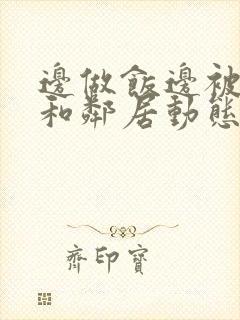 邊做飯邊被
和鄰居動態
齊印寶